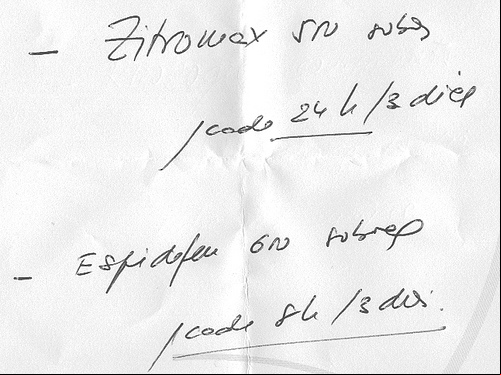 - Zitromax 500 sobres
/cada 24 h /3 días
- Espidifen 600 sobres
/cada 8h /3 días.